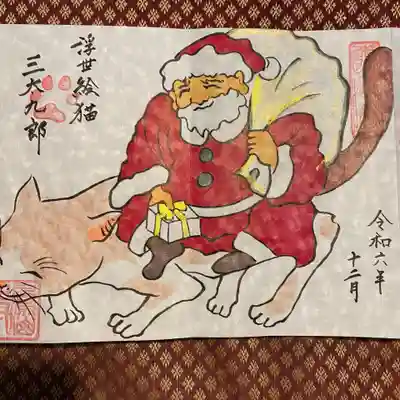 浮世絵猫
三大九郎
令和六年
十二月